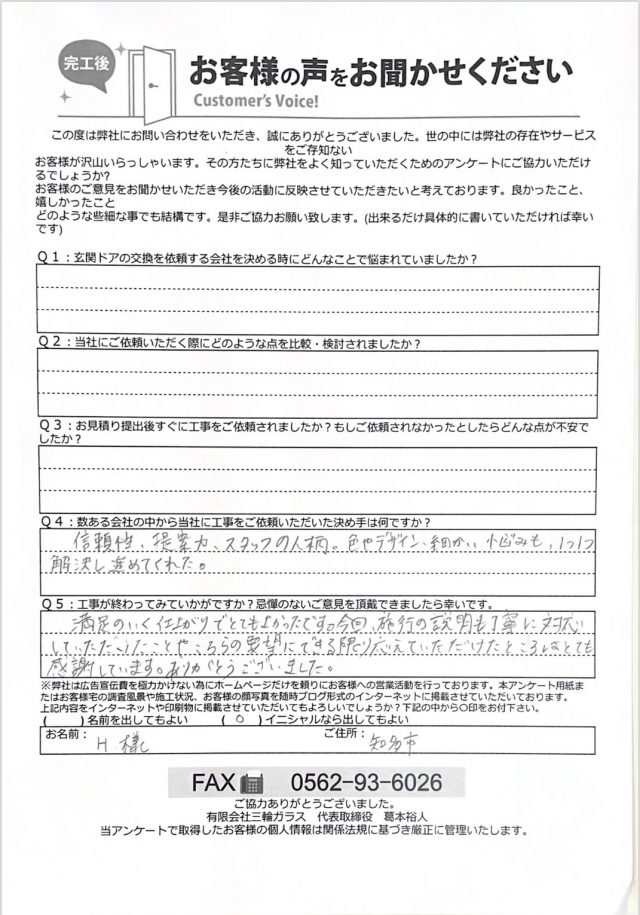 完工後
お客様の声をお聞かせください
Customer's Voice!
この度は弊社にお問い合わせをいただき、誠にありがとうございました。世の中には弊社の存在やサービス
をご存知ない
お客様が沢山いらっしゃいます。その方たちに弊社をよく知っていただくためのアンケートにご協力いただけ
るでしょうか?
お客様のご意見をお聞かせいただき今後の活動に反映させていただきたいと考えております。良かったこと、
嬉しかったこと
どのような些細な事でも結構です。是非ご協力お願い致します。(出来るだけ具体的に書いていただければ幸い
です)
Q1:玄関ドアの交換を依頼する会社を決める時にどんなことで悩まれていましたか?
Q2:当社にご依頼いただく際にどのような点を比較・検討されましたか?
Q3:お見積り提出後すぐに工事をご依頼されましたか?もしご依頼されなかったとしたらどんな点が不安で
したか?
Q4:数ある会社の中から当社に工事をご依頼いただいた決め手は何ですか?
信頼性、提案力、スタッフの人柄。色やデザイン、細かい小悩みも、1つ1つ
解決し進めてくれた。
Q5:工事が終わってみていかがですか?忌憚のないご意見を頂戴できましたら幸いです。
満足のいく仕上がりでとてもよかったです。今回、施行の説明も丁寧に対応
していただけたことやこちらの要望にできる限り応えていただけたところはとても
感謝しています。ありがとうございました。
※弊社は広告宣伝費を極力かけない為にホームページだけを頼りにお客様への営業活動を行っております。本アンケート用紙ま
たはお客様宅の調査風景や施工状況、お客様の顔写真を随時ブログ形式のインターネットに掲載させていただいております。
上記内容をインターネットや印刷物に掲載させていただいてもよろしいでしょうか?下記の中から〇印をお付下さい。
( )名前を出してもよい ( ○ )イニシャルなら出してもよい
お名前: H 様 ご住所: 知多市
FAX 0562-93-6026
ご協力ありがとうございました。
有限会社三輪ガラス 代表取締役 葛本裕人
当アンケートで取得したお客様の個人情報は関係法規に基づき厳正に管理いたします。